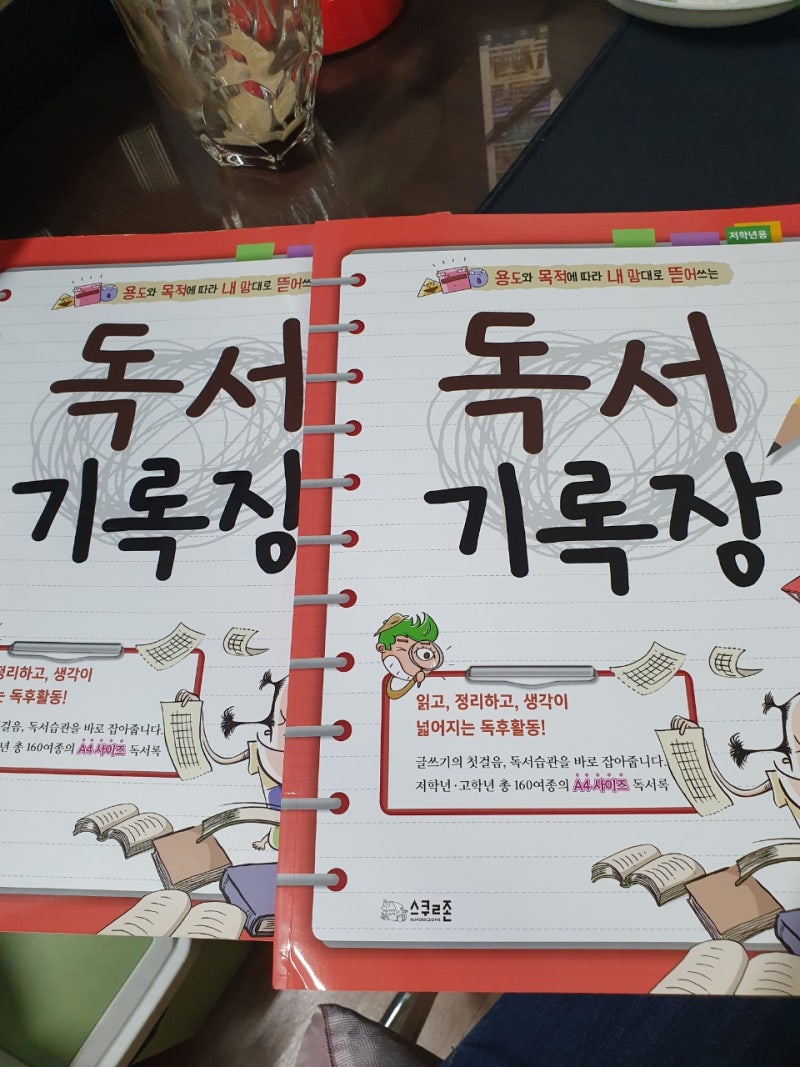 용도와 목적에 따라 내 맘대로 뜯어쓰
독서
기록장
정리하고, 생각이
는 독후활동!
걸음, 독서습관을 바로 잡아줍니다.
년 총 160여종의 A4 사이즈 독서록
저학년용
용도와 목적에 따라 내 맘대로 뜯어쓰는
독서
기록장
읽고, 정리하고, 생각이
넓어지는 독후활동!
글쓰기의 첫걸음, 독서습관을 바로 잡아줍니다.
저학년·고학년 총 160여종의 A4 사이즈 독서록
스쿨존
SCHOOLZONE